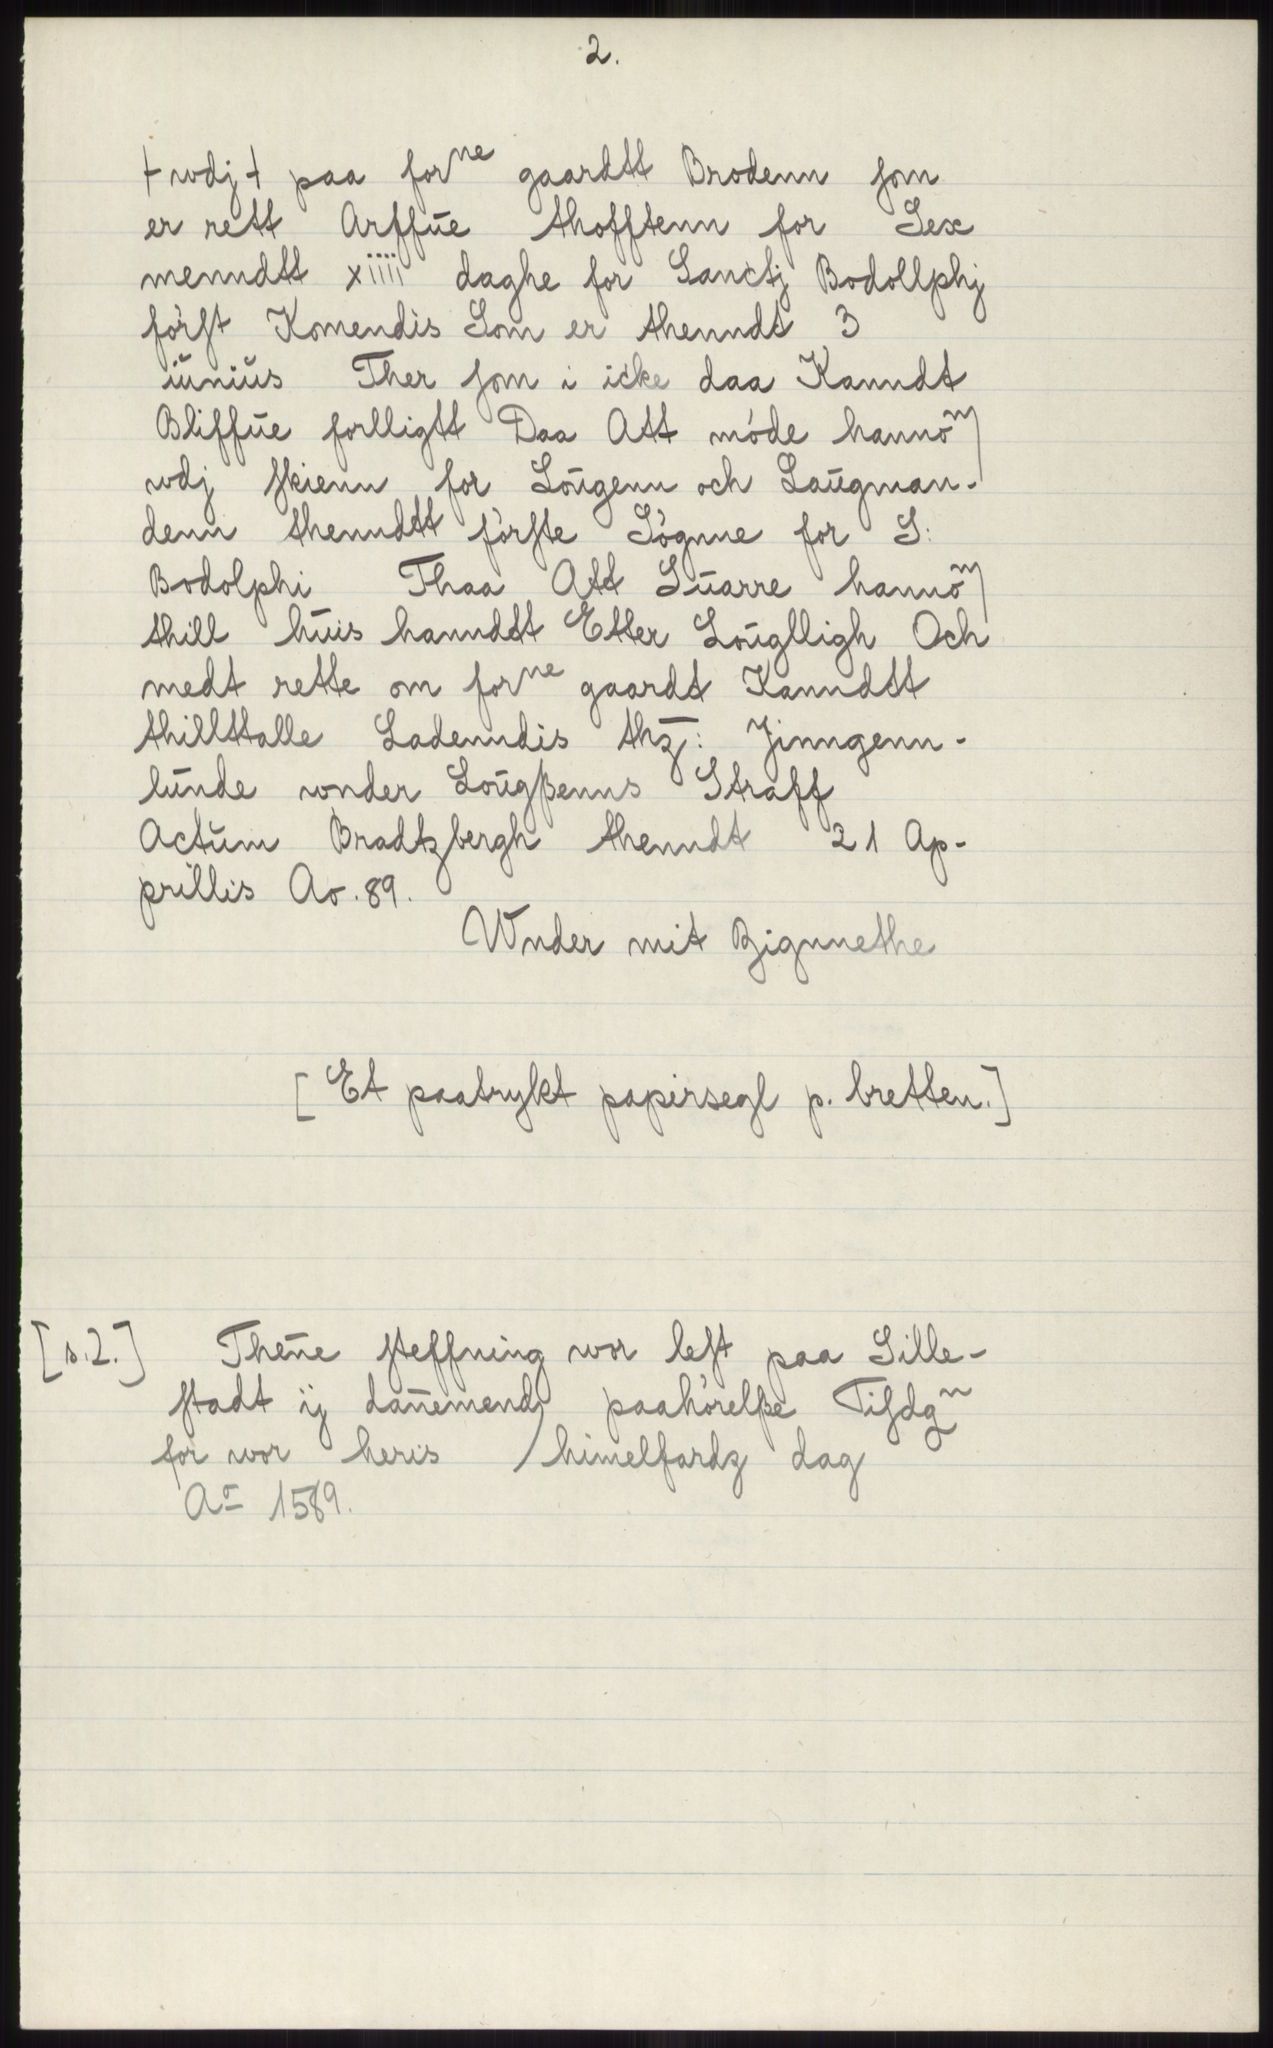 2.
+ wdj + paa forne gaardtt Brodenn som
er rett Arffūe thofftenn for Sex
menndtt xiiii daghe for Sanctj Bodollphj
först Komendis Som er thenndt 3
iŭniŭs Ther som i icke daa Kanndt
Bliffūe forlligtt Daa Att möde hannom
wdj skienn for Loūgenn och Laūgman-
denn thenndtt förste Sögnne for S:
Bodolphi Thaa Att Sūarre hannom
thill hūis hanndtt Etter Loūglligh Och
medt rette om forne gaardt Kanndtt
thillttalle Ladenndis thz: Jinngenn-
lūnde wnder Loūgßenns Straff
Actŭm Bradtzbergh thenndt 21 Ap-
prillis Ao. 89.
Wnder mit Zignnethe
[Et paatrykt papirsegl p. bretten.]
[s. 2.] Thene steffning wor lest paa Sille-
stadt ij danemendz paahörelße Tisdgn
for wor heris / himelfardz dag
Ao 1589.